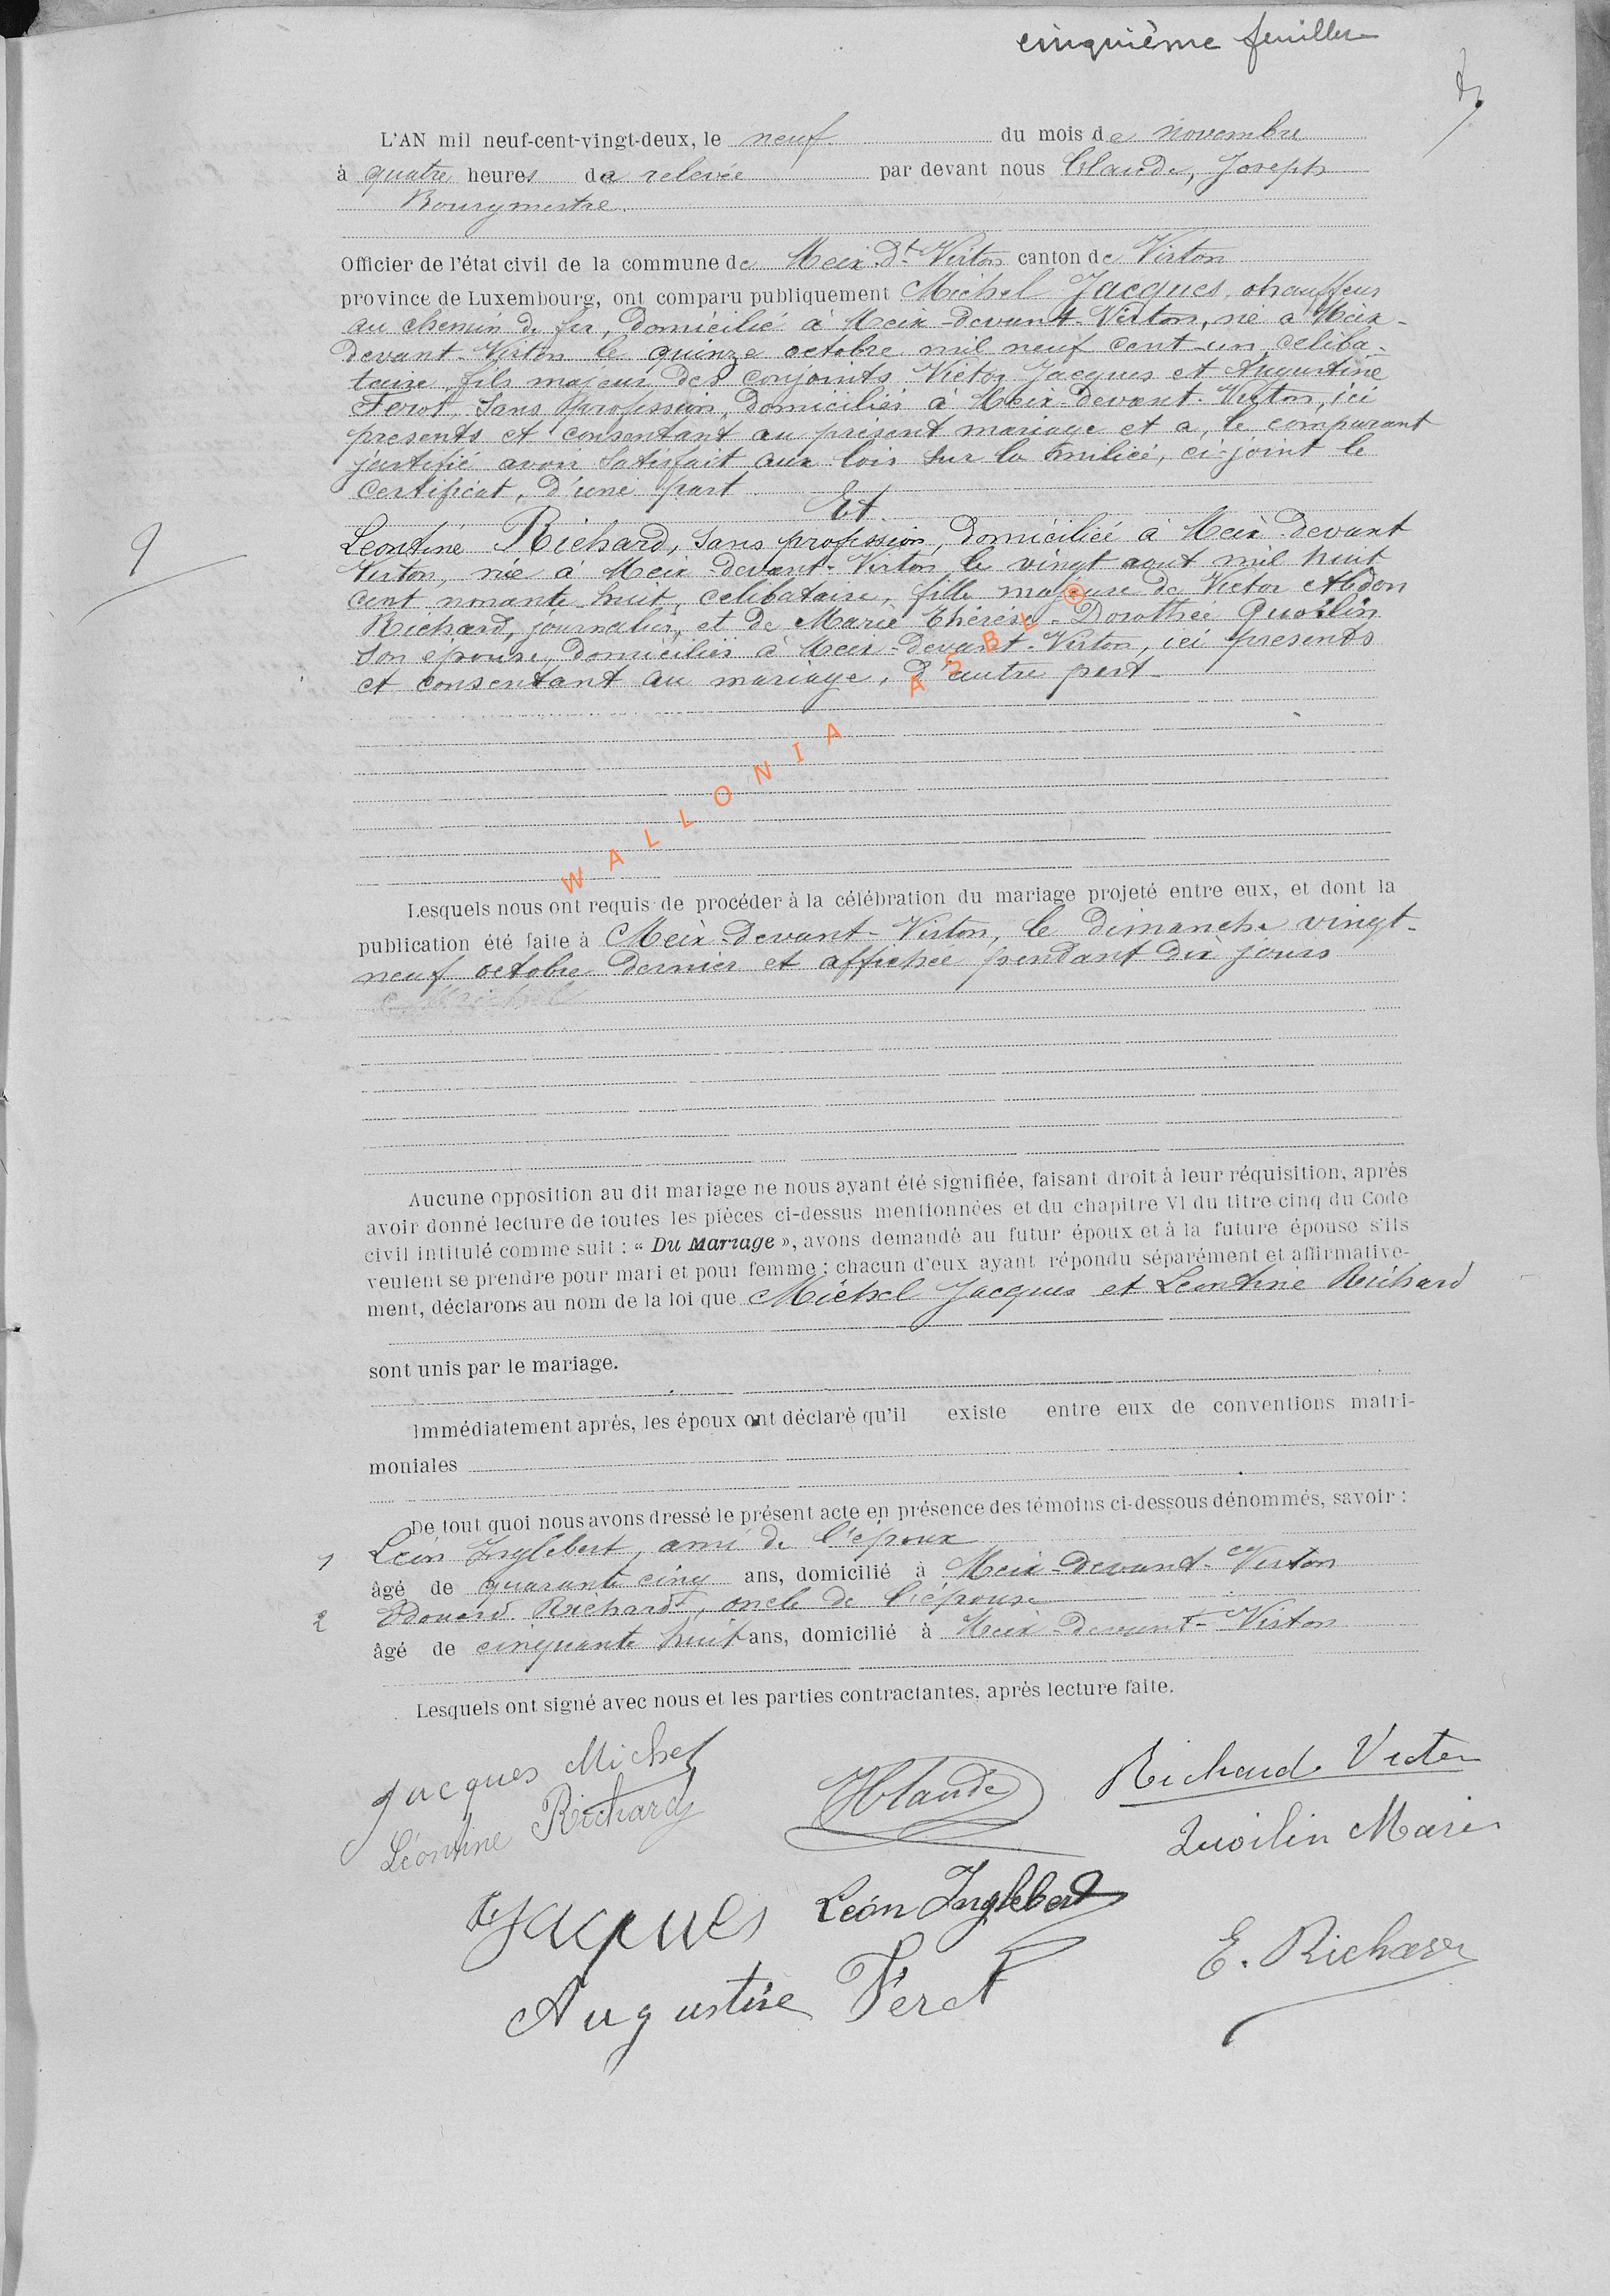 cinquième feuillet
L'AN mil neuf-cent-vingt-deux, le neuf du mois de novembre
à quatre heures de relevée par devant nous Claude, Joseph
Bourgmestre
Officier de l'état civil de la commune de Meix-Dt-Virton canton de Virton
province de Luxembourg, ont comparu publiquement Michel Jacques, chauffeur
au chemin de fer, domicilié à Meix-devant-Virton, né à Meix-
devant-Virton le quinze octobre mil neuf cent-un, céliba-
taire, fils majeur des conjoints Victor Jacques et Augustine
Feret, sans profession, domiciliés à Meix-devant-Virton, ici
présents et consentant au présent mariage et a, le comparant
justifié avoir satisfait aux lois sur la milice, ci-joint le
certificat, d'une part
Et
Léontine Richard, sans profession, domiciliée à Meix-devant
Virton, née à Meix-devant-Virton, le vingt aout mil huit
cent nonante huit, célibataire, fille majeure de Victor Abdon
Richard, journalier, et de Marie Thérèse-Dorothée Quoilin
son épouse, domiciliés à Meix-devant-Virton, ici présents
et consentant au mariage, d'autre part
WALLONIA ASBL ®
9
Lesquels nous ont requis de procéder à la célébration du mariage projeté entre eux, et dont la
publication été faite à Meix-devant-Virton, le dimanche vingt-
neuf octobre dernier et affichée pendant dix jours
Aucune opposition au dit mariage ne nous ayant été signifiée, faisant droit à leur réquisition, après
avoir donné lecture de toutes les pièces ci-dessus mentionnées et du chapitre VI du titre cinq du Code
civil intitulé comme suit : « Du Mariage », avons demandé au futur époux et à la future épouse s'ils
veulent se prendre pour mari et pour femme ; chacun d'eux ayant répondu séparément et affirmative-
ment, déclarons au nom de la loi que Michel Jacques et Léontine Richard
sont unis par le mariage.
Immédiatement après, les époux ont déclaré qu'il existe entre eux de conventions matri-
moniales
De tout quoi nous avons dressé le présent acte en présence des témoins ci-dessous dénommés, savoir :
1 Léon Inglebert, ami de l'époux
âgé de quarante cinq ans, domicilié à Meix-devant-Virton
2 Edouard Richard, oncle de l'épouse
âgé de cinquante huit ans, domicilié à Meix-devant-Virton
Lesquels ont signé avec nous et les parties contractantes, après lecture faite.
Jacques Michel
Richard Victor
Léontine Richard
JClaude
Quoilin Marie
Jacques
Léon Inglebert
E. Richard
Augustine Feret